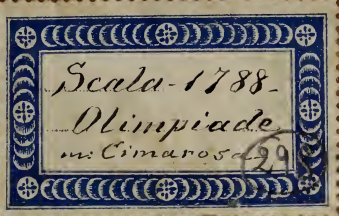 Scala - 1788 -
Olimpiade
m: Cimarosa
29